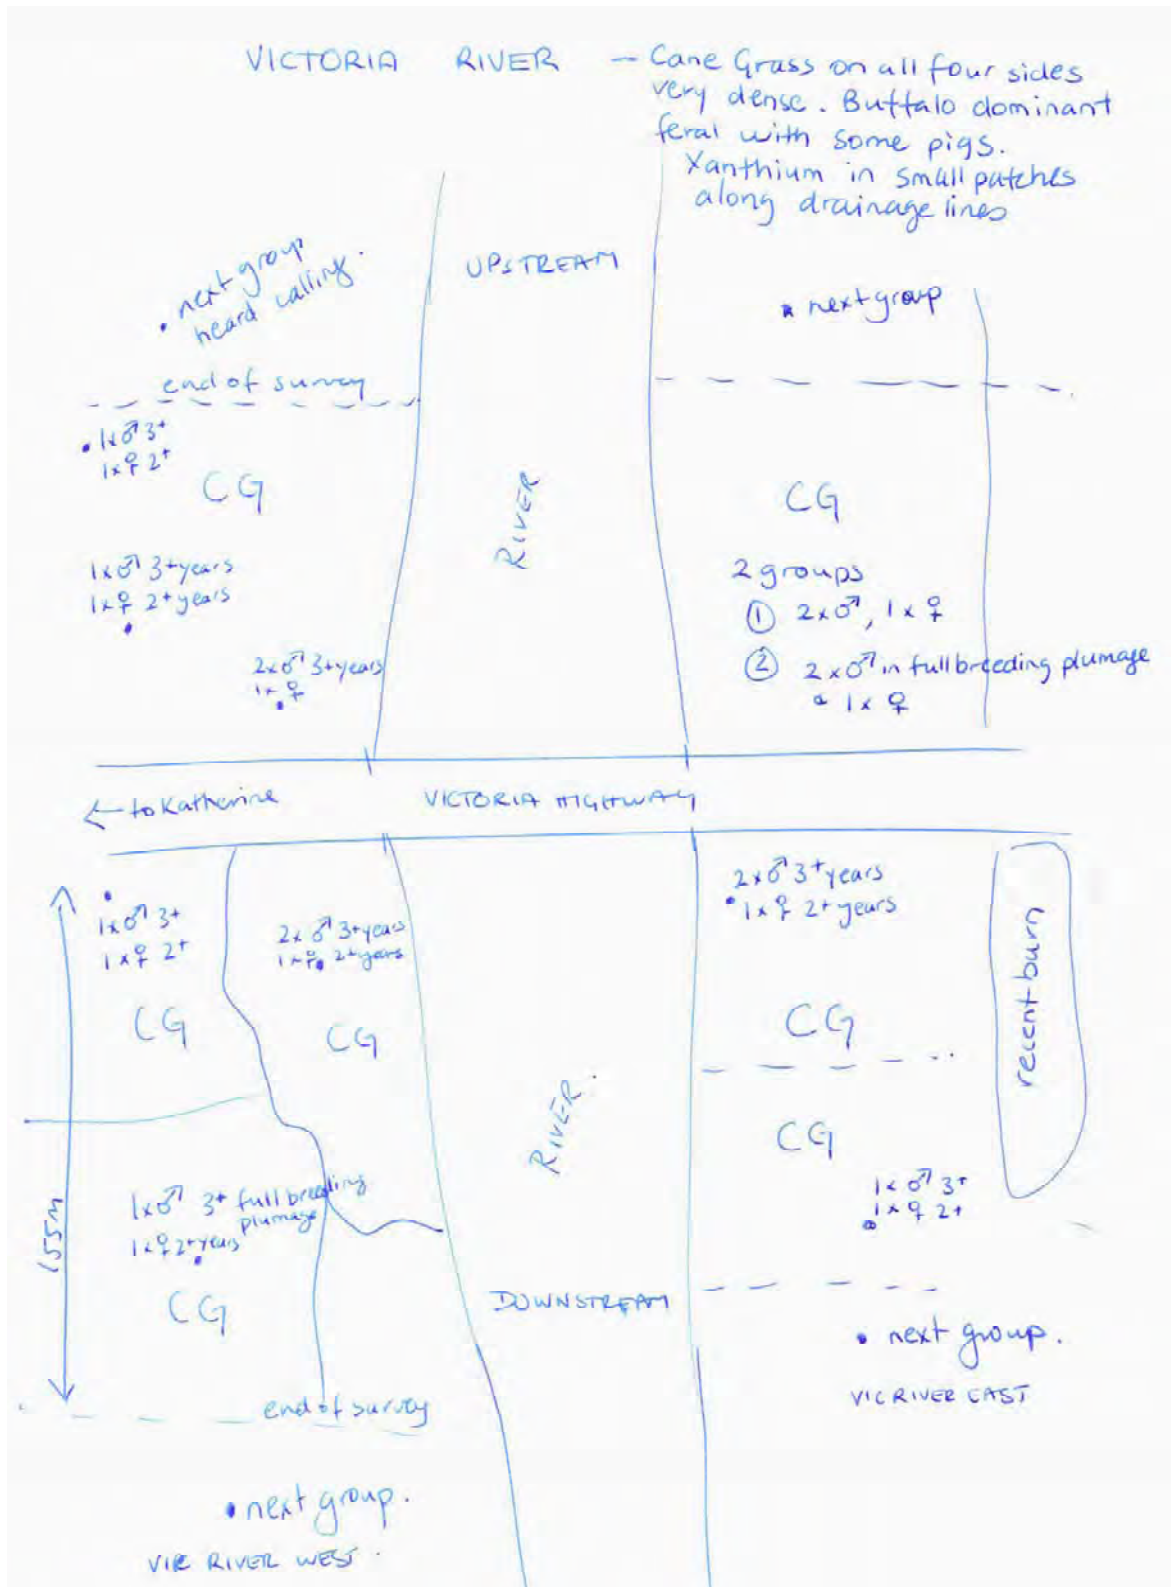 VICTORIA RIVER – Cane Grass on all four sides
very dense. Buffalo dominant
feral with some pigs.
Xanthium in small patches
along drainage lines
UPSTREAM
• next group
heard calling.
• next group
end of survey
• 1x♂ 3+
1x♀ 2+
CG
CG
RIVER
1x♂ 3+years
1x♀ 2+years
2 groups
① 2x♂, 1x♀
② 2x♂ in full breeding plumage
1x♀
2x♂ 3+years
1x♀
← to Katherine
VICTORIA HIGHWAY
1x♂ 3+
1x♀ 2+
2x ♂ 3+years
1x♀ 2+years
2x♂ 3+years
• 1x♀ 2+years
recent burn
CG
CG
CG
RIVER.
CG
155m
1x♂ 3+ full breeding
plumage
1x♀ 2+years
1x♂ 3+
1x♀ 2+
CG
DOWNSTREAM
• next group.
VIC RIVER EAST
end of survey
• next group.
VIC RIVER WEST.